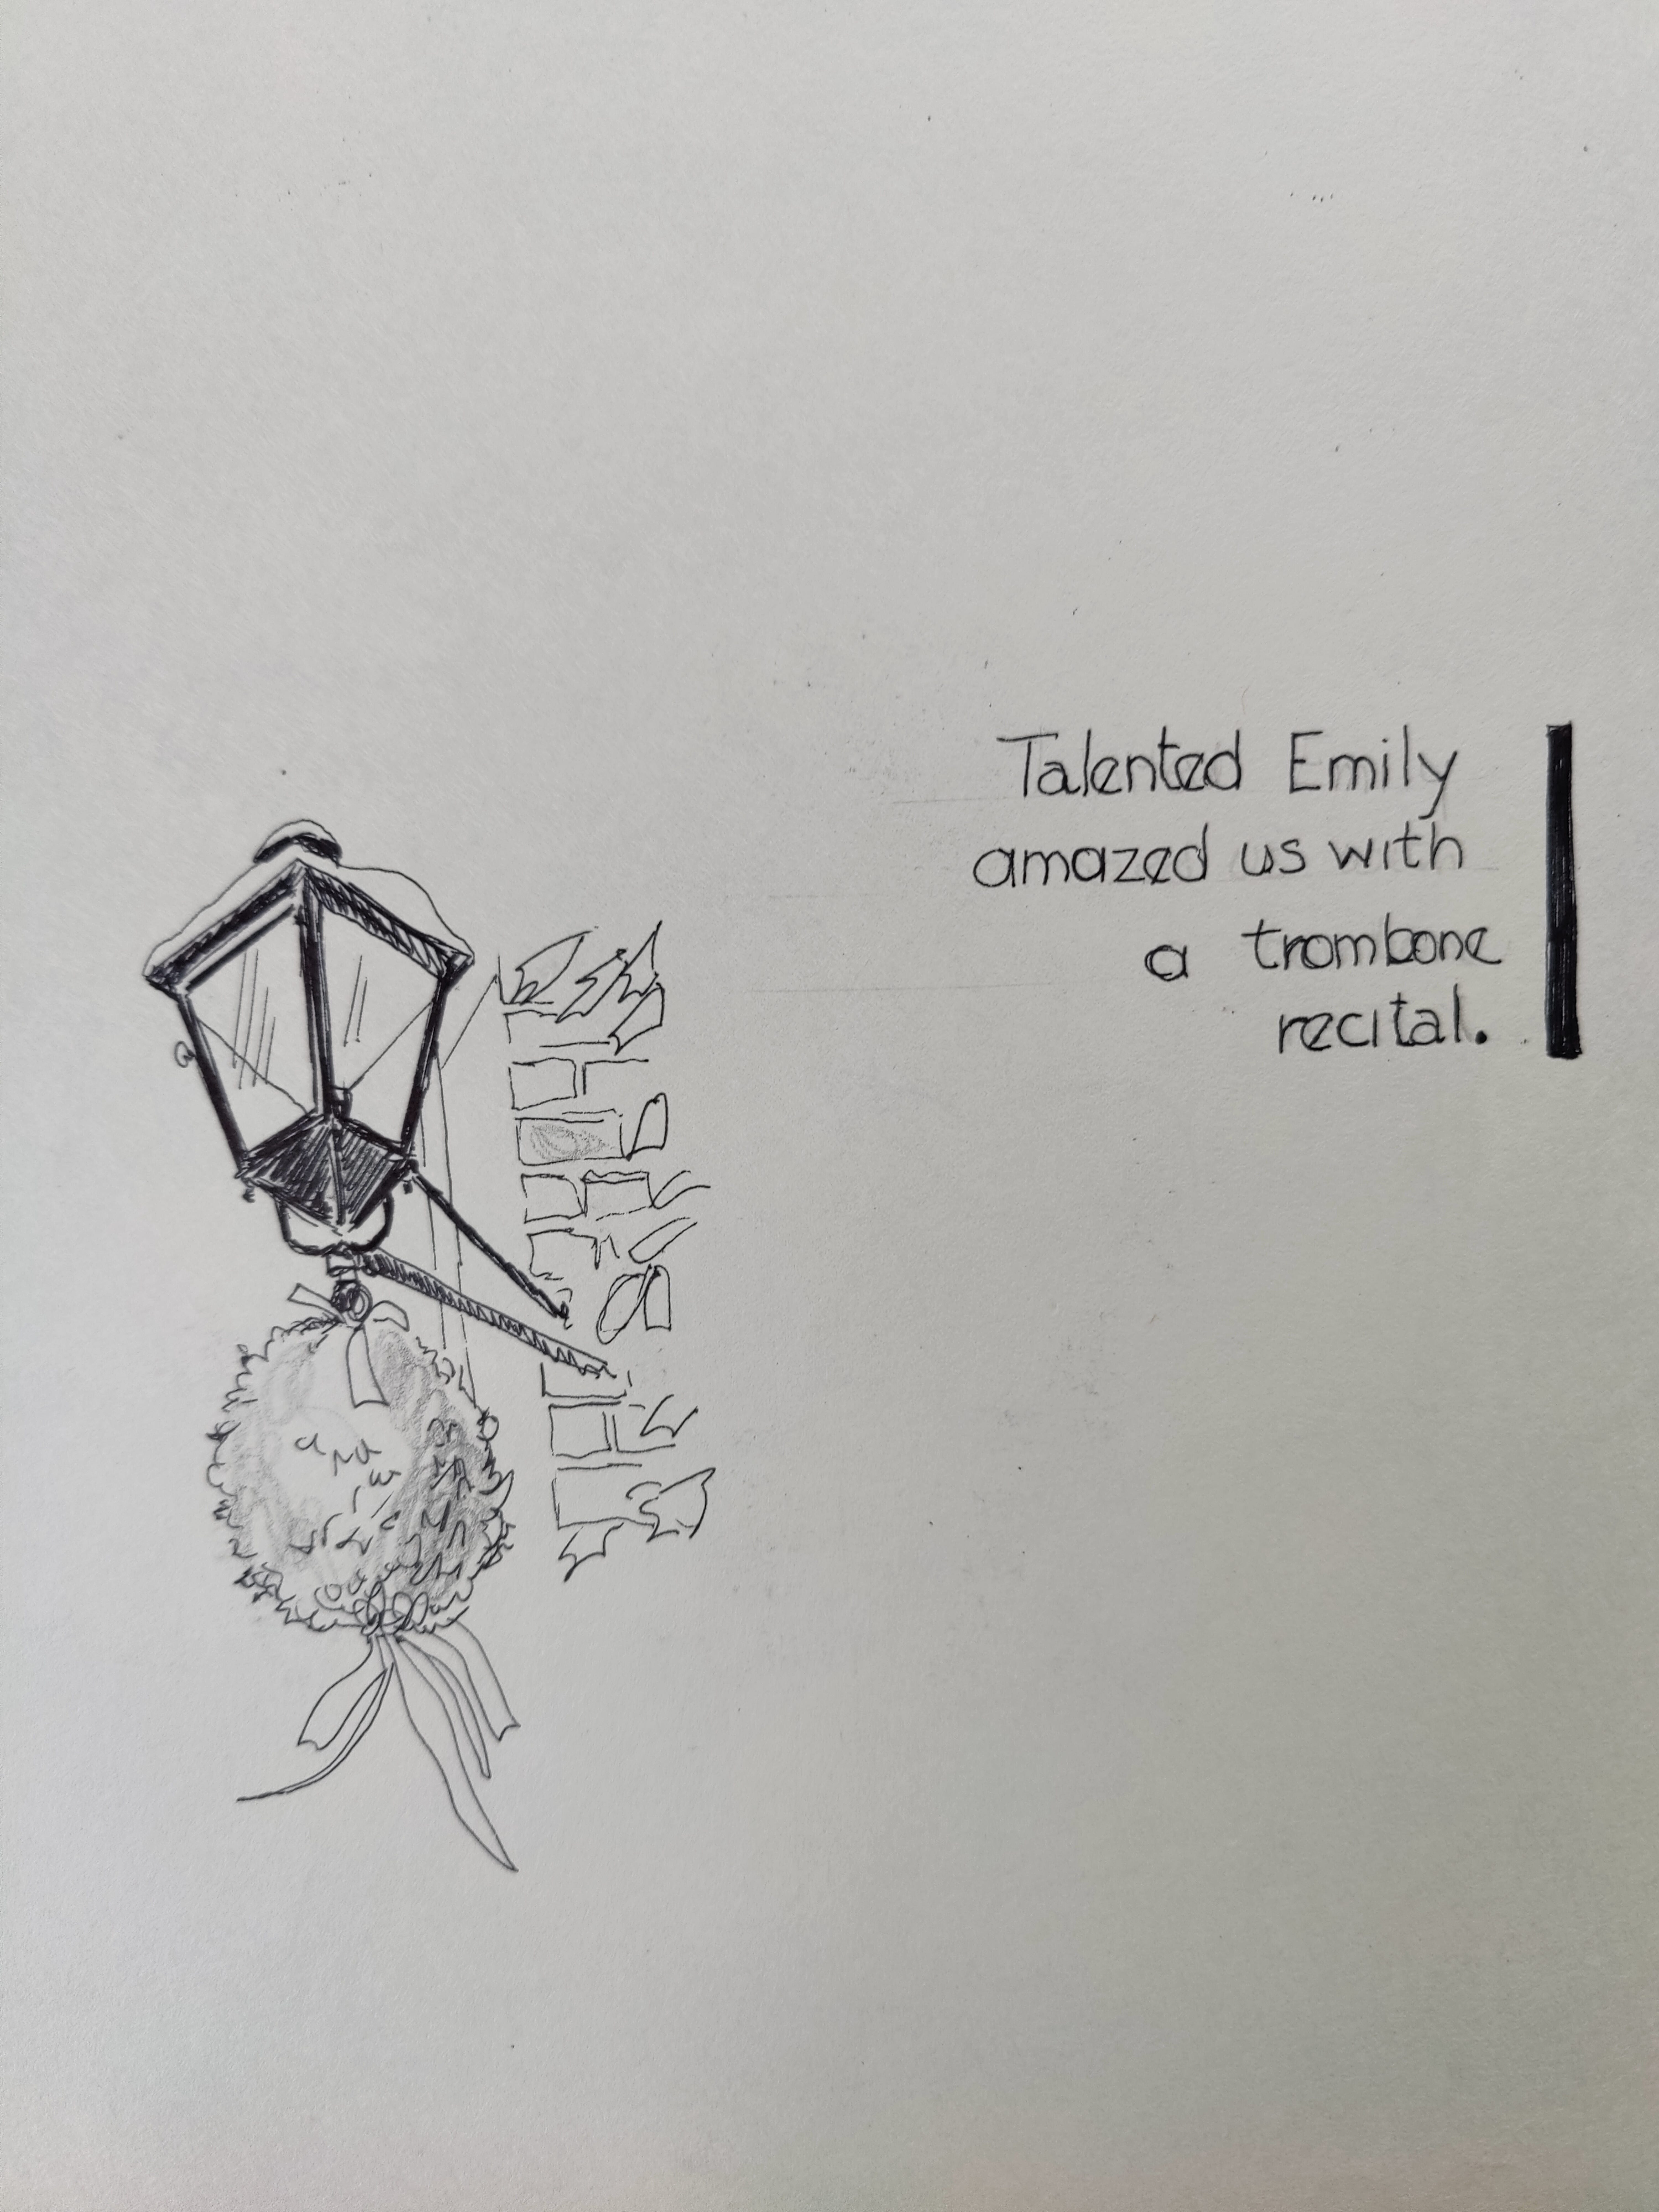 Talented Emily
amazed us with
a trombone
recital.